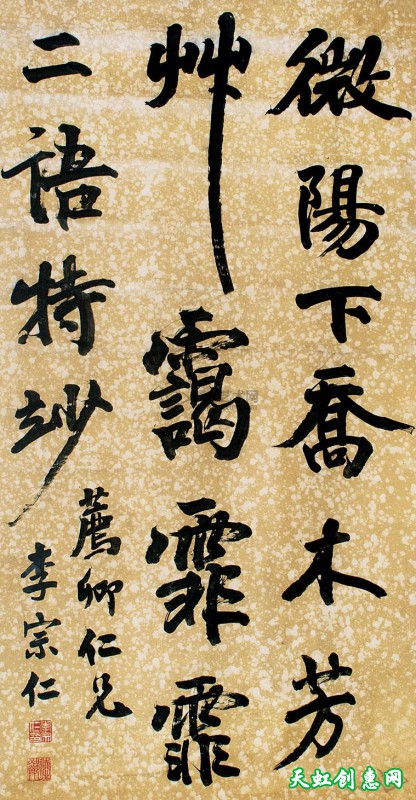 微陽下喬木芳
艸靄霏霏
二語特玅
薦卿仁兄
李宗仁
天虹创惠网